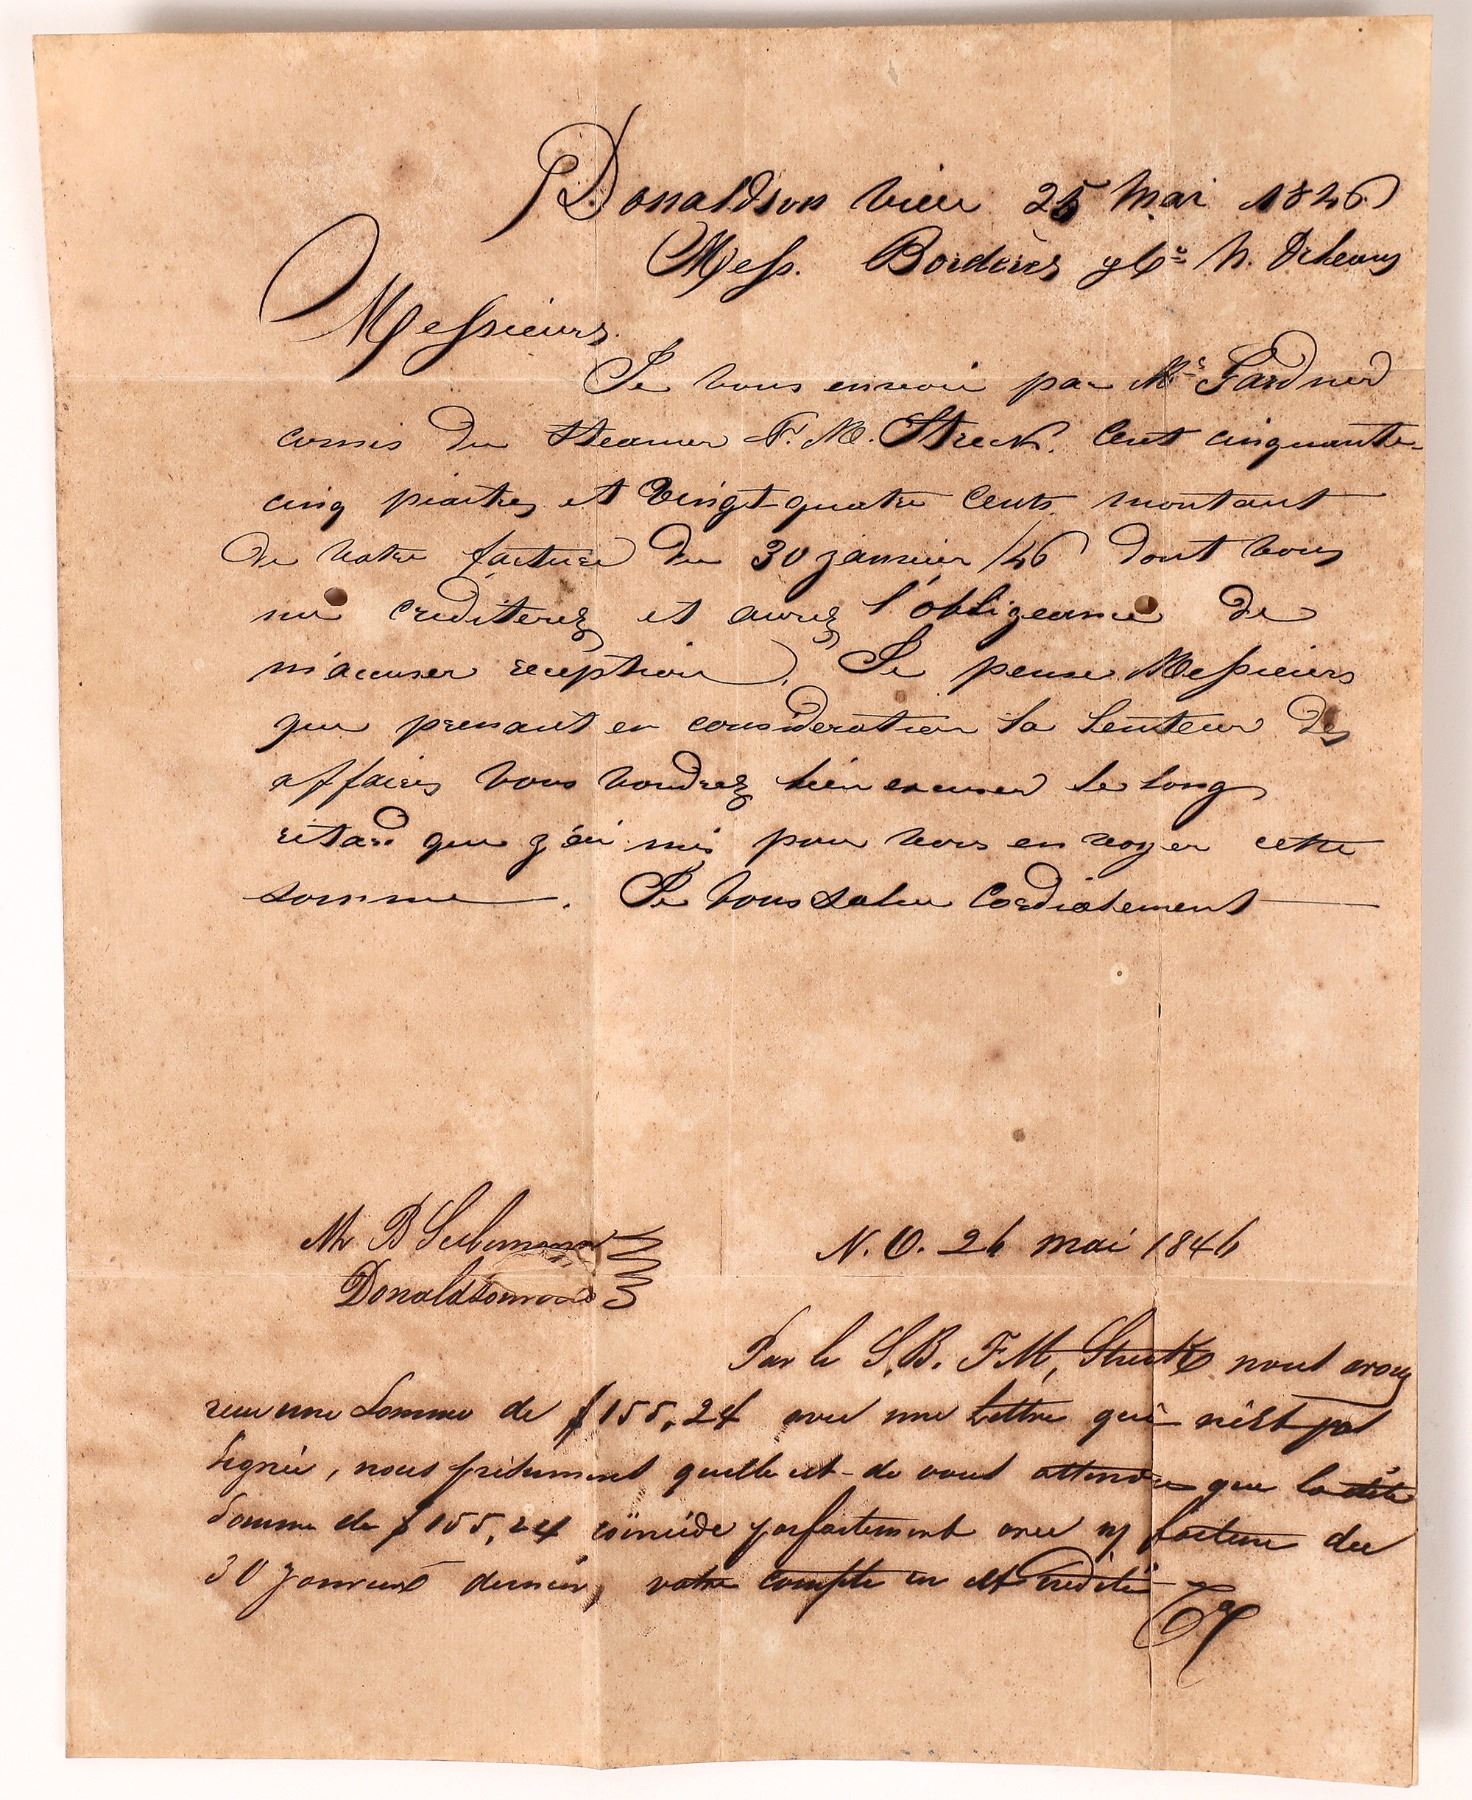 Donaldson ville 25 Mai 1846
Mess. Borderes & Ce N. Orleans
Messieurs.
Je vous envoie par Mr Gardner
comis du steamer F. M. Streck. Cent cinquante-
cinq piastres et vingt quatre cents montant
de votre facture du 30 janvier /46 dont vous
me crediterez et aurez l'obligeance de
m'accuser reception. Je pense Messieurs
que prenant en consideration la lenteur des
affaires vous voudrez bien excuser le long
retard que j'ai mis pour vous envoyer cette
somme. Je vous salue Cordialement
Mr B
Donaldsonville
N. O. 26 mai 1846
Par le S. B. F M, Streck nous avons
recu une Somme de $155,24 avec une Lettre qui n'est pas
Signée, nous présumons quelle est de vous attendu que la dite
Somme de $155,24 coïncide parfaitement avec n/ facture du
30 Janvier dernier, votre compte en est crédité